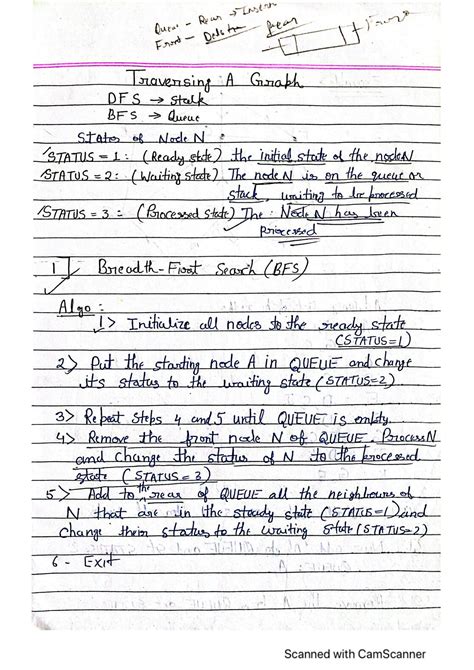 Queue - Rear → Insert
Front - Delete
Rear
Front
Traversing A Graph
DFS → Stack
BFS → Queue
Status of Node N :
STATUS = 1 : (Ready state) the initial state of the node N
STATUS = 2 : (Waiting state) The node N is on the queue or
stack, waiting to be processed
STATUS = 3 : (Processed state) The Node N has been
processed
1 Breadth-First Search (BFS)
Algo :
1> Initialize all nodes to the ready state
(STATUS=1)
2> Put the starting node A in QUEUE and change
its status to the waiting state (STATUS=2)
3> Repeat steps 4 and 5 until QUEUE is empty.
4> Remove the front node N of QUEUE. Process N
and change the status of N to the processed
state (STATUS = 3)
5> Add to the rear of QUEUE all the neighbours of
N that are in the steady state (STATUS=1) and
change their status to the waiting state (STATUS=2)
6 - Exit
Scanned with CamScanner